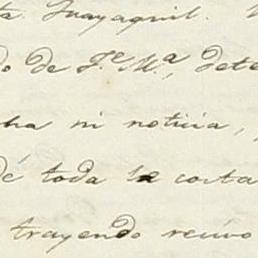 ta. Guayaquil.
do de Fe. Ma., dete
cha ni noticia,
dé toda la costa
trayendo recivo